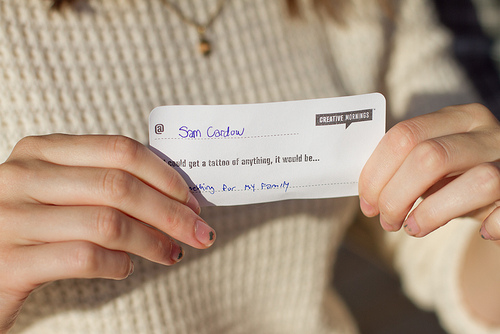 @ Sam Cardow
CREATIVE MORNINGS
could get a tattoo of anything, it would be...
for my family